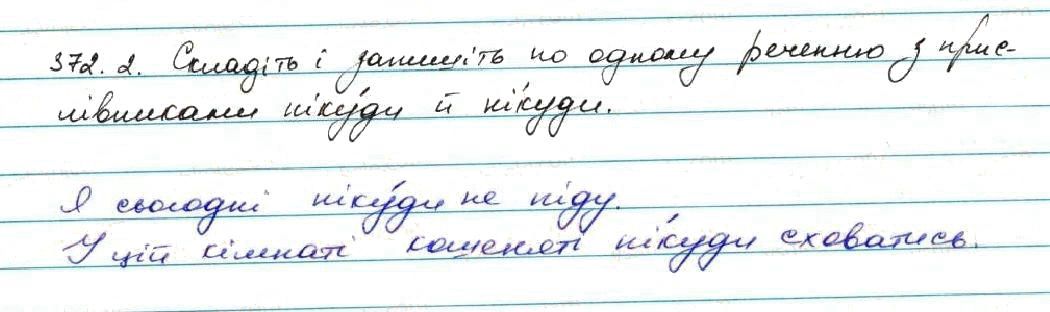 372. 2. Складіть і запишіть по одному реченню з прис-
лівниками ніку́ди й ні́куди.
Я сьогодні ніку́ди не піду.
У цій кімнаті кошеняті ні́куди сховатись.